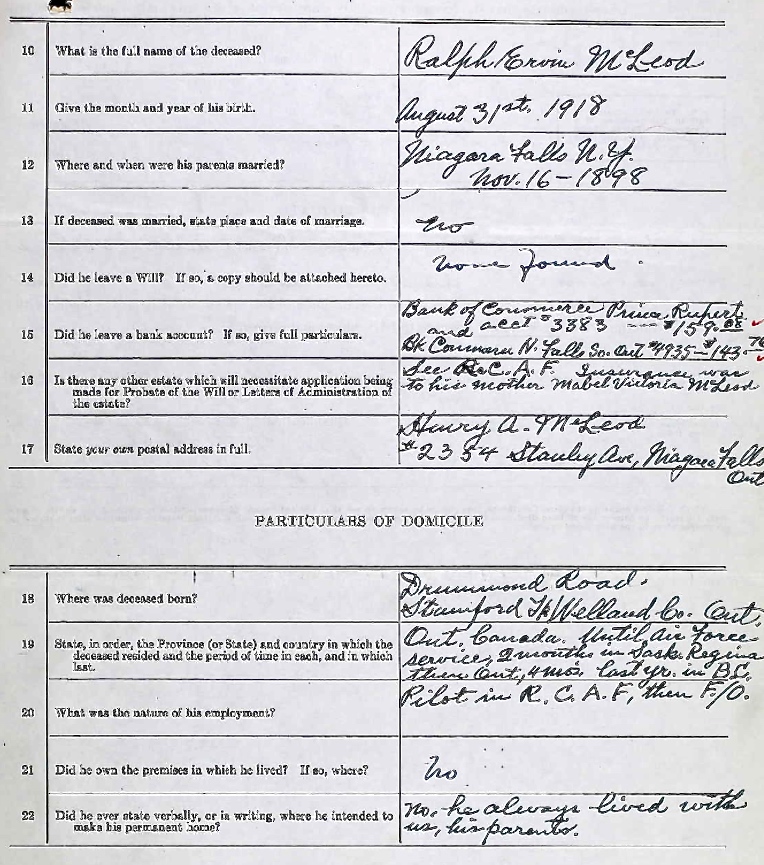 10 What is the full name of the deceased? Ralph Ervin McLeod
11 Give the month and year of his birth. August 31st. 1918
12 Where and when were his parents married? Niagara Falls N.Y.
Nov. 16 - 1898
13 If deceased was married, state place and date of marriage. no
14 Did he leave a Will? If so, a copy should be attached hereto. None found
15 Did he leave a bank account? If so, give full particulars. Bank of Commerce Prince Rupert
and acct #3383 --- $159.08
Bk Commerce N. Falls So. Ont #4935 - $143.76
16 Is there any other estate which will necessitate application being
made for Probate of the Will or Letters of Administration of
the estate?
See R.C.A.F. Insurance was
to his mother Mabel Victoria McLeod
17 State your own postal address in full. Henry A. McLeod
#2354 Stanley Ave, Niagara Falls
Ont
PARTICULARS OF DOMICILE
18 Where was deceased born? Drummond Road.
Stamford Welland Co. Ont.
19 State, in order, the Province (or State) and country in which the
deceased resided and the period of time in each, and in which
last.
Ont. Canada. Until Air Force
service, 2 months in Sask. Regina
then Ont, 4 mos. last yr. in B.C.
20 What was the nature of his employment? Pilot in R.C.A.F, then F/O.
21 Did he own the premises in which he lived? If so, where? No
22 Did he ever state verbally, or in writing, where he intended to
make his permanent home?
no, he always lived with
us, his parents.